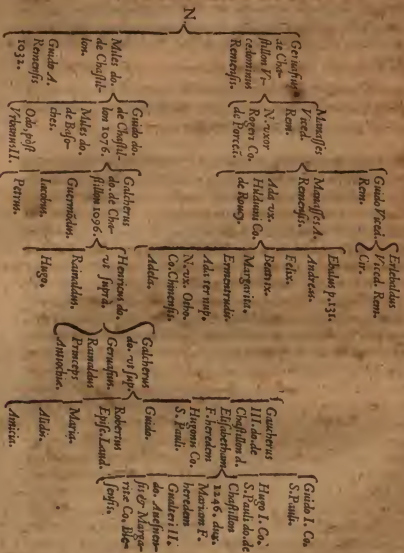 N.
Geruasius
se Cha-
stillon Vi-
cedominus
Remensis.
Miles do.
de Chastil-
lon.
Guido A.
Remensis
1032.
Manasses
Viced.
Rem.
N. vxor
Rogeri Co.
de Porcei.
Guido do.
de Chastil-
lon 1076.
Miles do.
de Baso-
ches.
Odo, post
Vrbanus II.
Guido Viced.
Rem.
Manasses A.
Remensis.
Ada vx.
Hilduini Co.
de Roucy.
Galcherus
do. de Cha-
stillon 1096.
Guermõdus.
Iacobus.
Petrus.
Erlebaldus
Viced. Rem.
Cir.
Ebalus p. 131.
Andreas.
Felix.
Beatrix.
Margarita.
Ermentrudis.
Ada ter nup.
N. vx. Otho.
Co. Chinensis.
Adela.
Henricus do.
vt supra.
Rainaldus.
Hugo.
Galcherus
do. vt sup.
Geruasius.
Rainaldus
Princeps
Antiochiæ.
Gaucherus
III. do. de
Chastillon d.
Elisabetham
F. heredem
Hugonis Co.
S. Pauli.
Guido.
Robertus
Epis. Laud.
Maria.
Alida.
Amicia.
Guido I. Co.
S. Pauli.
Hugo I. Co.
S. Pauli do. de
Chastillon
1246. dux.
Mariam F.
heredem
Gualteri II.
do. Auesnen-
sis & Marga-
ritæ Co. Ble-
sensis.